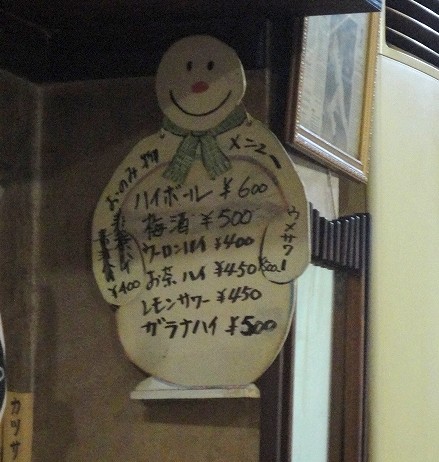 おのみ物
メニュー
ハイボール ¥600
梅酒 ¥500
ウーロンハイ ¥400
お茶ハイ ¥450
レモンサワー ¥450
ガラナハイ ¥500
ウメサワー
¥400
カツサ